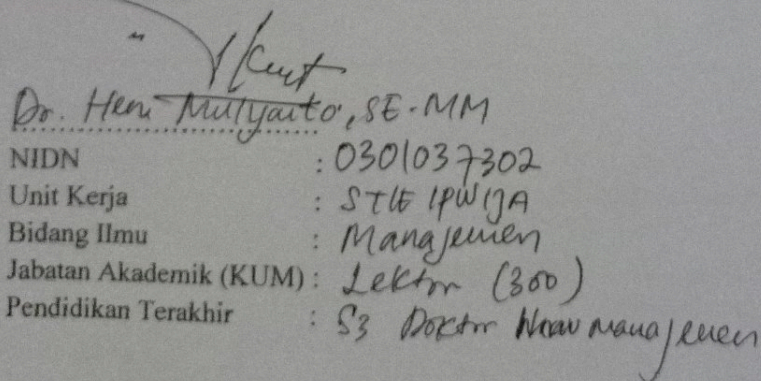 Dr. Heri Mulyanto, SE-MM
NIDN : 0301037302
Unit Kerja : STIE IPWIJA
Bidang Ilmu : Manajemen
Jabatan Akademik (KUM) : Lektor (300)
Pendidikan Terakhir : S3 Doktor Manajemen